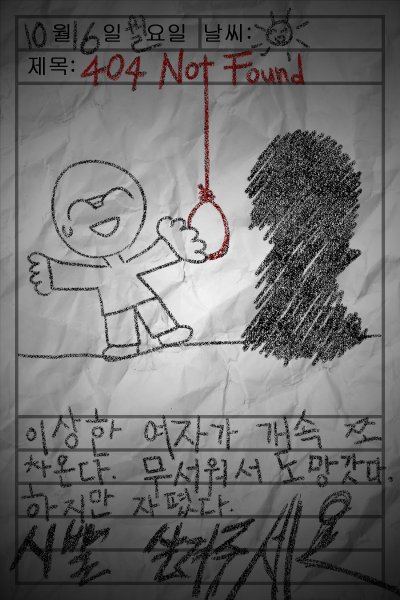 10월 16일 월요일 날씨:
제목: 404 Not Found
이상한 여자가 계속 쪼
찬온다. 무서워서 도망갔다.
하지만 자폈다.
시발 살려주세요